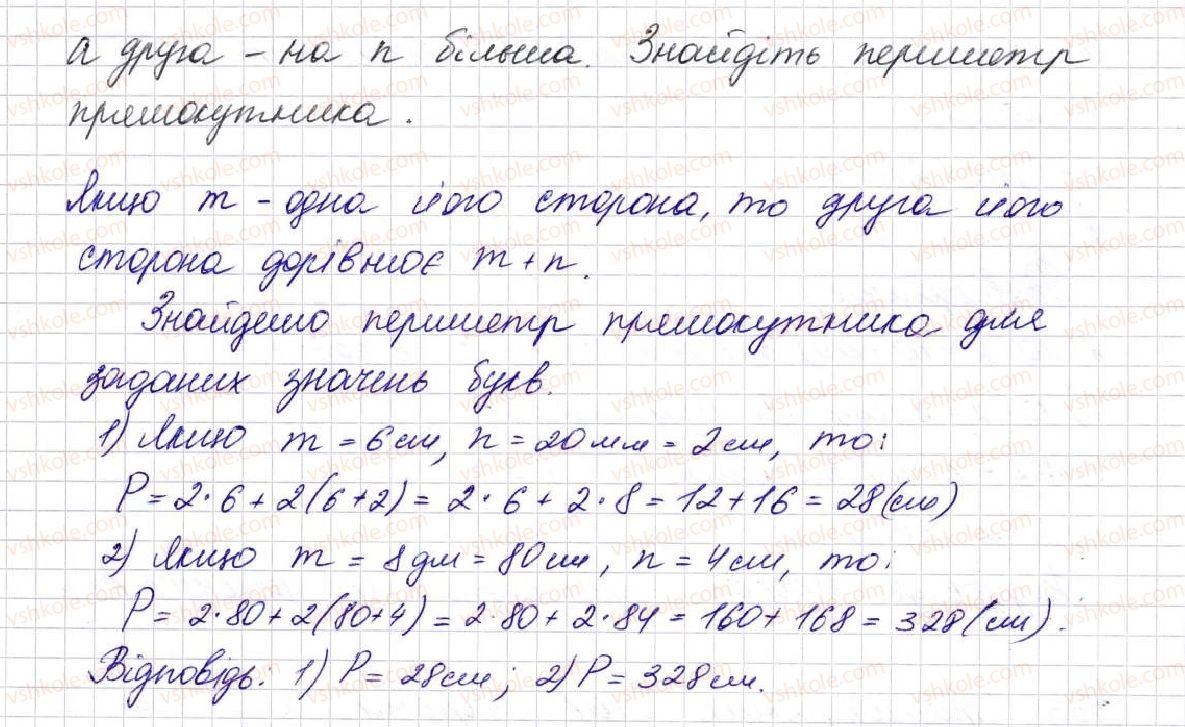 а друга – на n більша. Знайдіть периметр
прямокутника.
Якщо m - одна його сторона, то друга його
сторона дорівнює m + n.
Знайдемо периметр прямокутника для
заданих значень букв.
1) Якщо m = 6 см, n = 20 мм = 2 см, то:
P = 2 · 6 + 2(6+2) = 2 · 6 + 2 · 8 = 12 + 16 = 28 (см)
2) Якщо m = 8 дм = 80 см, n = 4 см, то:
P = 2·80 + 2(80+4) = 2·80 + 2·84 = 160 + 168 = 328 (см).
Відповідь: 1) P = 28 см; 2) P = 328 см.